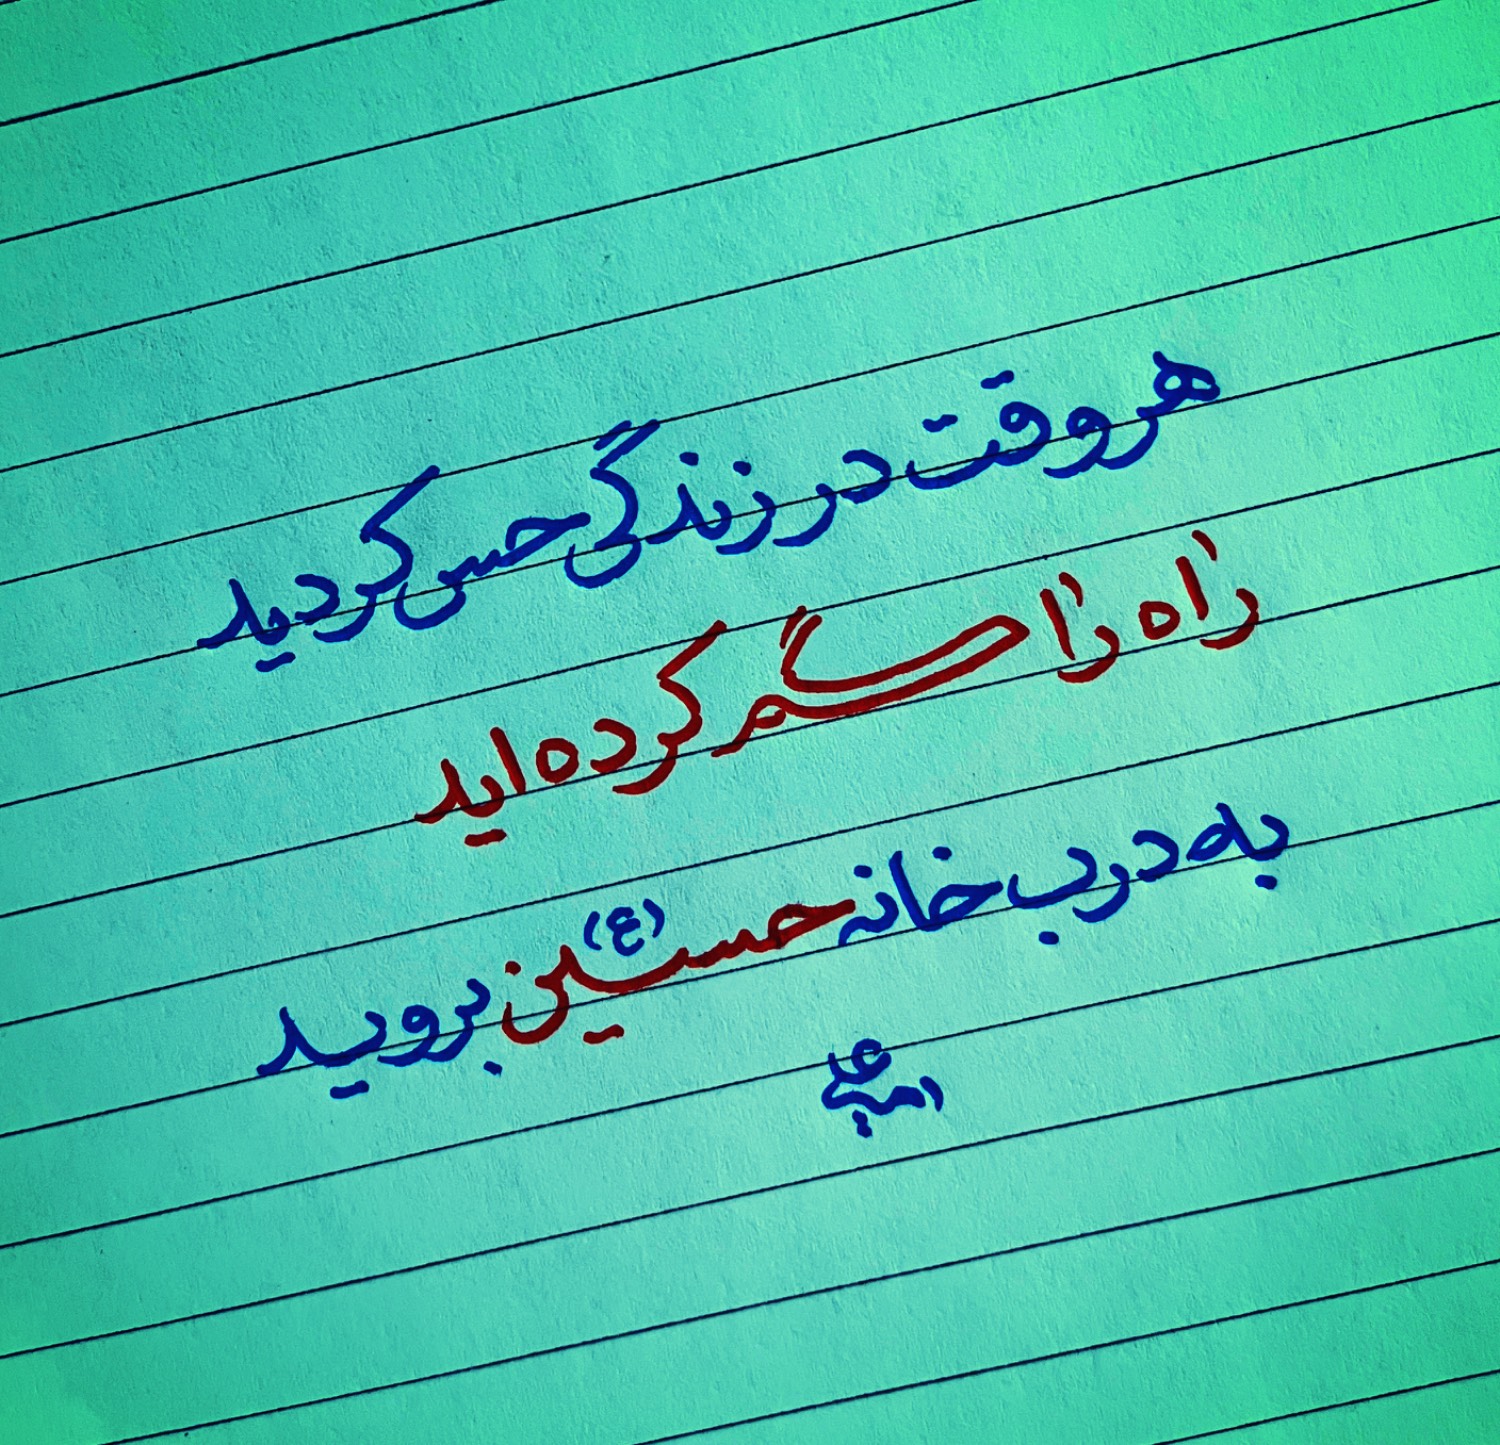 هر وقت در زندگی حس کردید
راه را گم کرده اید
به درب خانه حسین (ع) بروید